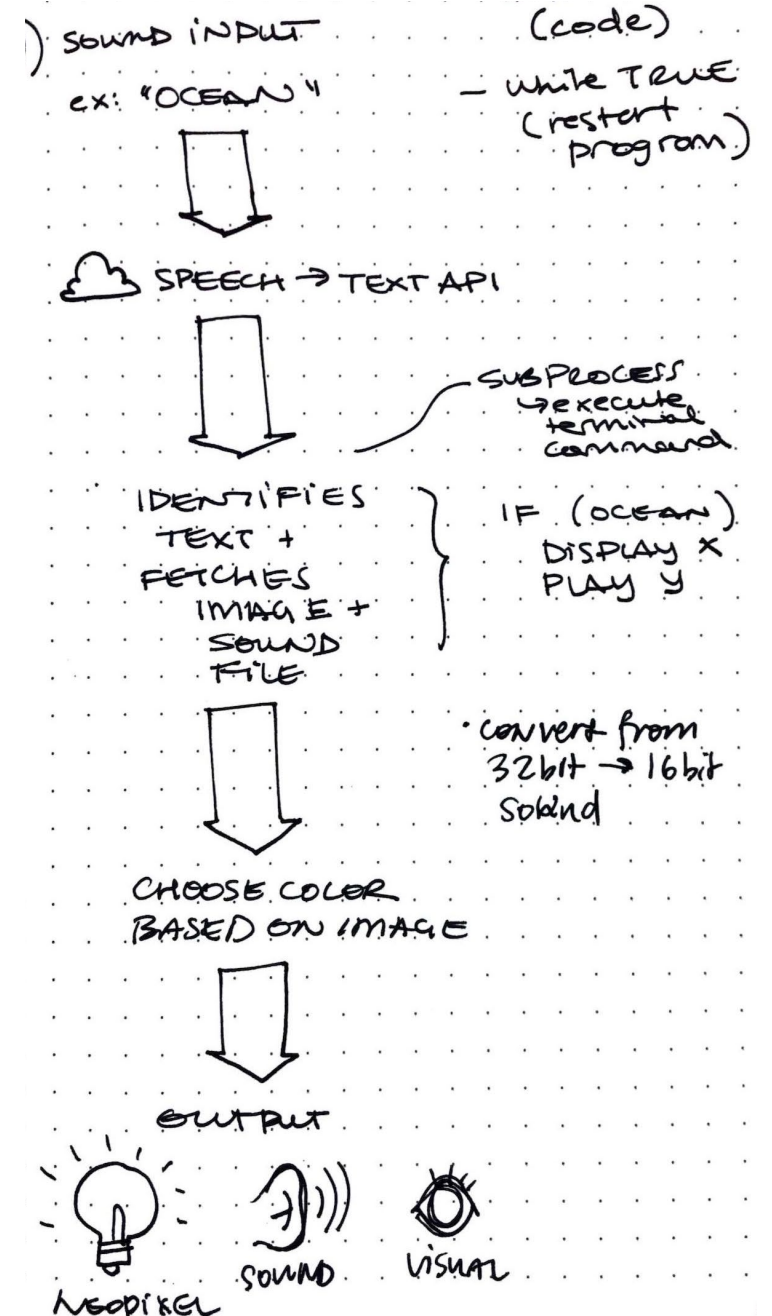 ) SOUND INPUT
ex: "OCEAN"
(code)
- while TRUE
(restart
program)
SPEECH → TEXT API
SUBPROCESS
↳ execute
terminal
command
IDENTIFIES
TEXT +
FETCHES
IMAGE +
SOUND
FILE
IF (OCEAN)
DISPLAY X
PLAY Y
• convert from
32bit → 16bit
sound
CHOOSE COLOR
BASED ON IMAGE
OUTPUT
NEOPIXEL
SOUND
VISUAL